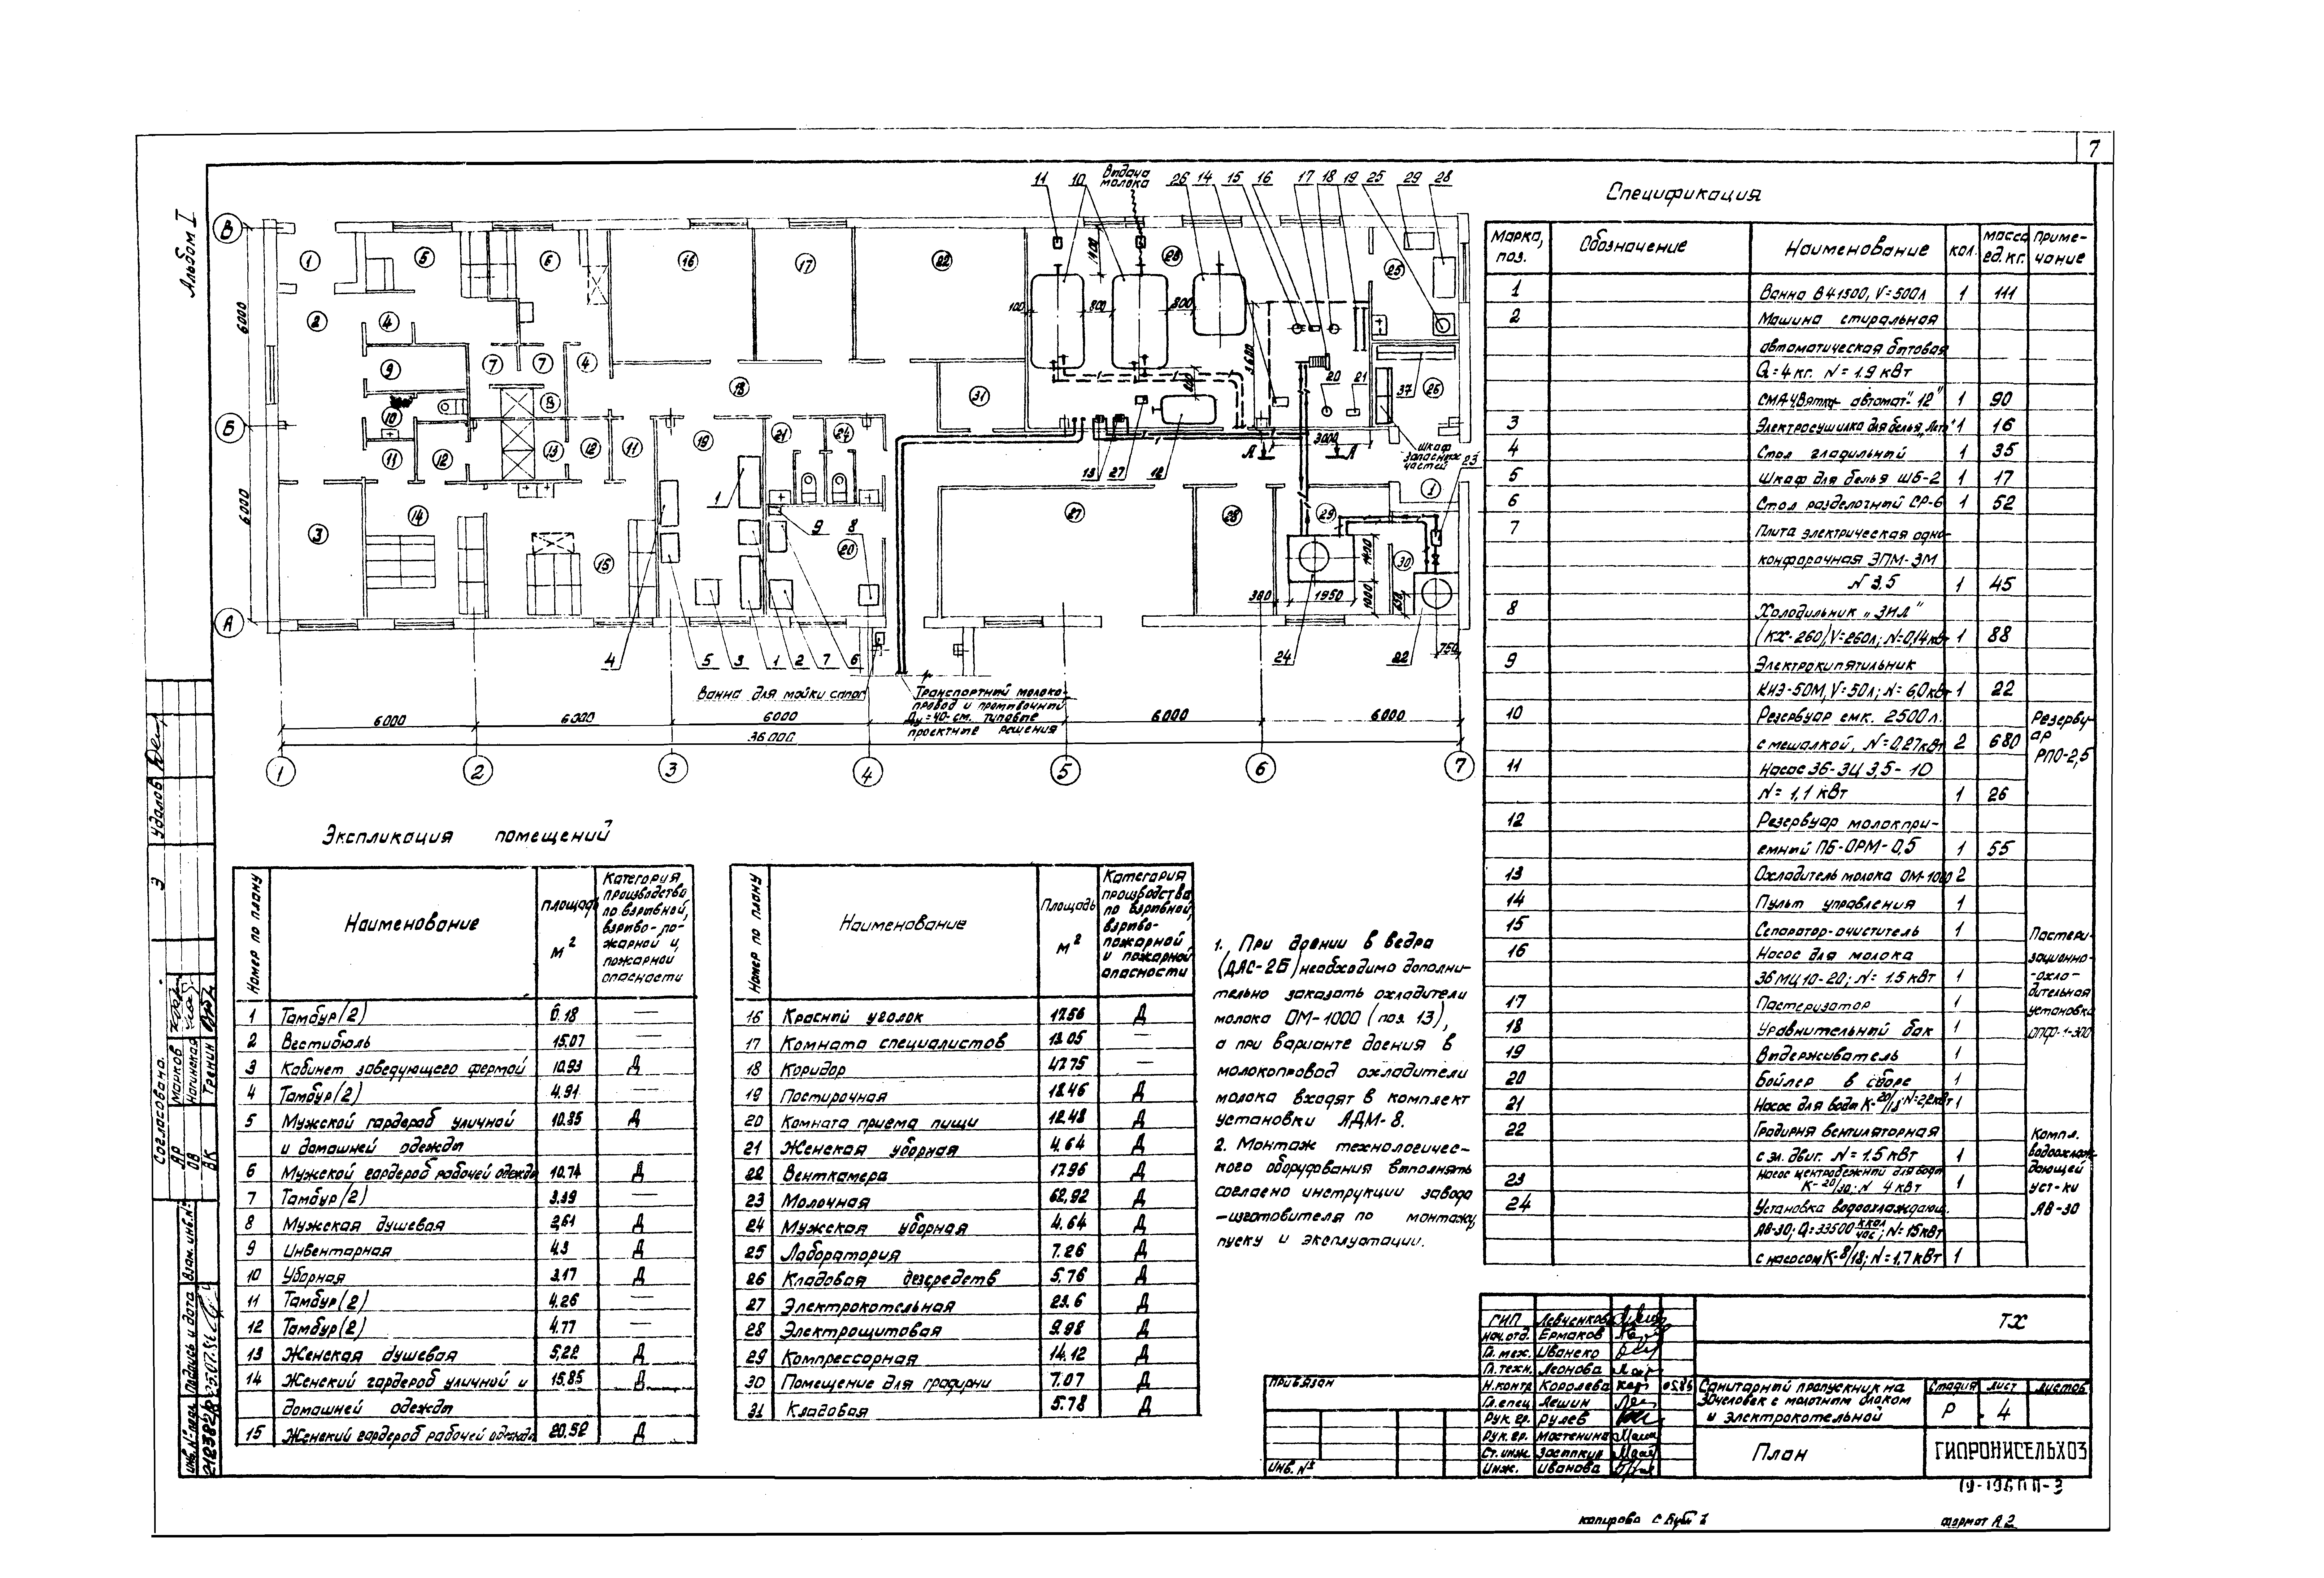 7
Альбом I
Выдача
молока
11 10 26 14 15 16 17 18 19 25 29 28
В
Б
А
6000
6000
1 5 6 16 17 22 23 25
2 4 9 7 7 4 8 10 18 31 26
11 12 13 12 11 19 21 24
3 14 15 20 27 28 29 30 1
1400
100 800 800
3600
3000
20 21 37
шкаф
запасных
частей
23
13 27 12
А А
1 9 8
300 1950 1000 1400
750
4 5 3 1 2 7 6 24 22
Ванна для мойки сапог
Транспортный молоко-
провод и промывочный
Ду=40-см. типовые
проектные решения
6000 6000 6000 6000 6000
36000
1 2 3 4 5 6 7
Спецификация
Марка, поз. Обозначение Наименование кол. масса ед.кг. Приме-чание
1 Ванна В41500, V=500л 1 111
2 Машина стиральная
автоматическая бытовая
Q=4кг. N=1.9 кВт
СМА4„Вятка-автомат"-12" 1 90
3 Электросушилка для белья „Лета" 1 16
4 Стол гладильный 1 35
5 Шкаф для белья ШБ-2 1 17
6 Стол разделочный СР-6 1 52
7 Плита электрическая одно-
конфорочная ЭПМ-3М
N 3,5 1 45
8 Холодильник „ЗИЛ"
(КХ-260) V=260л; N=0,14кВт 1 88
9 Электрокипятильник
КНЭ-50М, V=50л; N=6,0кВт 1 22
10 Резервуар емк. 2500л. Резерву-
с мешалкой, N=0,27кВт 2 680 ар
РПО-2,5
11 Насос 36-3Ц 3,5-10
N=1,1 кВт 1 26
12 Резервуар молокпри-
емный ПБ-ОРМ-0,5 1 55
13 Охладитель молока ОМ-1000 2
14 Пульт управления 1
15 Сепаратор-очиститель 1 Пастери-
16 Насос для молока зационно-
36МЦ10-20; N=1.5 кВт 1 -охла-
17 Пастеризатор 1 дительная
18 Уравнительный бак 1 установка
19 Выдерживатель 1 ОПФ-1-300
20 Бойлер в сборе 1
21 Насос для воды К-20/18 N=2,2кВт 1
22 Градирня вентиляторная Компл.
с эл. двиг. N=1.5 кВт 1 водоохлаж-
23 Насос центробежный для воды дающей
К-20/30; N 4 кВт 1 уст-ки
24 Установка водоохлаждающ. АВ-30
АВ-30; Q=33500 ккал/час; N=15кВт
с насосом К-8/18; N=1,7 кВт 1
Экспликация помещений
Номер по плану Наименование Площадь м² Категория производства по взрывной, взрыво-по-жарной и, пожарной опасности
1 Тамбур(2) 6.18 —
2 Вестибюль 15.07 —
3 Кабинет заведующего фермой 10.93 Д
4 Тамбур(2) 4.91 —
5 Мужской гардероб уличной 10.35 Д
и домашней одежды
6 Мужской гардероб рабочей одежды 10.74 Д
7 Тамбур(2) 3.39 —
8 Мужская душевая 2,61 Д
9 Инвентарная 4.3 Д
10 Уборная 3.17 Д
11 Тамбур(2) 4.26 —
12 Тамбур(2) 4.77 —
13 Женская душевая 5,22 Д
14 Женский гардероб уличной и 15.85 Д
домашней одежды
15 Женский гардероб рабочей одежды 20.52 Д
Номер по плану Наименование Площадь м² Категория производства по взрывной, взрыво-пожарной и пожарной опасности
16 Красный уголок 17.56 Д
17 Комната специалистов 13.05 —
18 Коридор 47.75 —
19 Постирочная 18.46 Д
20 Комната приема пищи 12.48 Д
21 Женская уборная 4.64 Д
22 Венткамера 17.96 Д
23 Молочная 62,92 Д
24 Мужская уборная 4.64 Д
25 Лаборатория 7.26 Д
26 Кладовая дезсредств 5.76 Д
27 Электрокотельная 23.6 Д
28 Электрощитовая 9.98 Д
29 Компрессорная 14.12 Д
30 Помещение для градирни 7.07 Д
31 Кладовая 5.78 Д
1. При доении в ведра
(ДАС-2Б) необходимо дополни-
тельно заказать охладители
молока ОМ-1000 (поз. 13),
а при варианте доения в
молокопровод охладители
молока входят в комплект
установки АДМ-8.
2. Монтаж технологичес-
кого оборудования выполнять
согласно инструкции завода
-изготовителя по монтажу,
пуску и эксплуатации.
Согласовано.
АР Марков
ОВ Нагинская
ВК Тренин
Э Удалов
Инв.№ подл. Подпись и дата Взам.инв.№
ГИП Левченков
Нач.отд. Ермаков
Гл.мех. Иванско
Гл.техн. Леонова
Н.контр Королева 05.85
Гл.спец Лешин
Рук.гр. Рулев
Рук.гр. Мостенина
Ст.инж. Заспкин
Инж. Иванова
Привязан
Инв.№
ТХ
Санитарный пропускник на
30человек с молочным блоком
и электрокотельной
Стадия Лист Листов
Р 4
План
ГИПРОНИСЕЛЬХОЗ
Копировал
формат А2